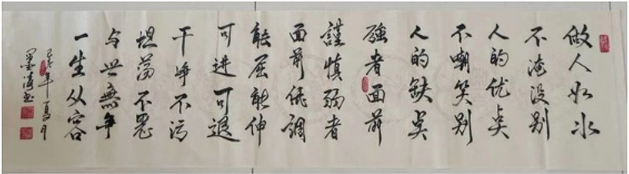 做人如水
不淹没别
人的优点
不嘲笑别
人的缺点
强者面前
謹慎弱者
面前低调
能屈能伸
可进可退
干净不污
坦荡不畏
与世無争
一生从容
年夏月